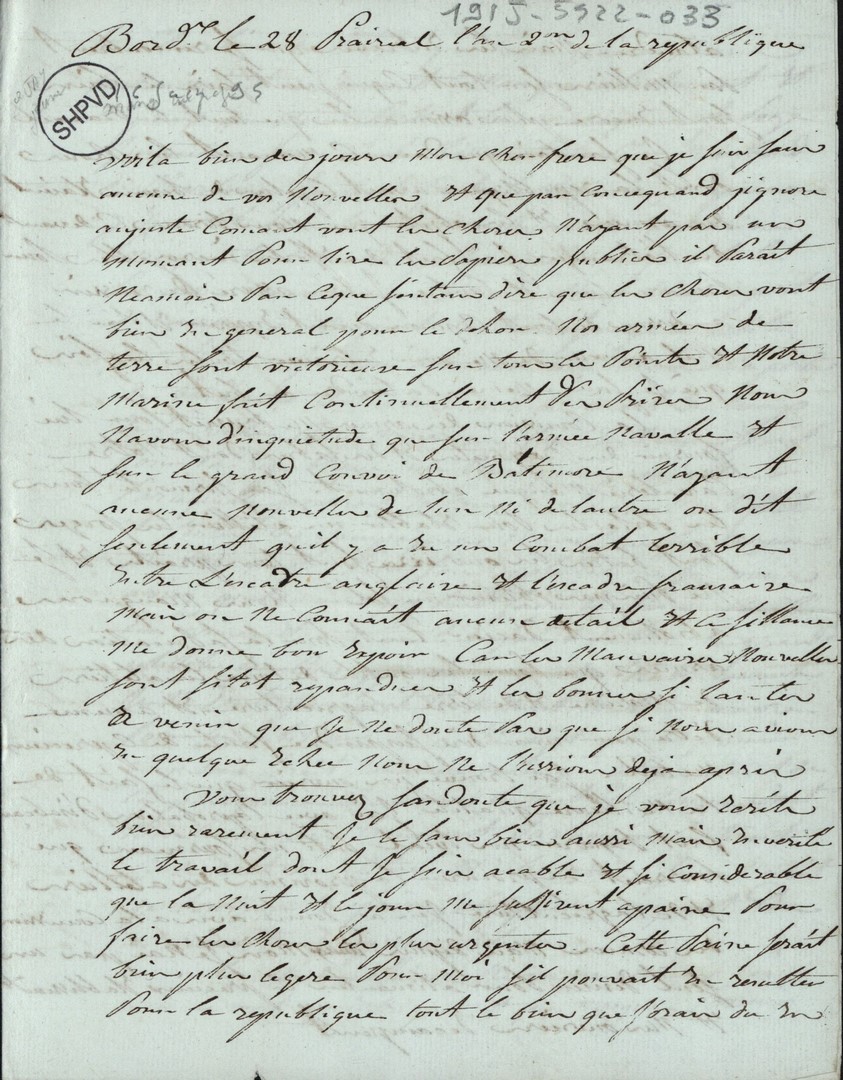 1915-5922-033
Bord.x le 28 Prairial l'an 2.me de la republique
SHPVD
voila bien des jours mon cher frere que je suis sans
aucune de vos nouvelles et que par concequand j'ignore
aujuste comant vont les choses n'ayant pas un
momant pour lire les papiers publics il parait
neamoin par ceque j'entans dire que les choses vont
bien en general pour le dehors nos armées de
terre sont victorieuse sur tous les points et notre
marine fait continuellement des prises nous
navons d'inquietude que sur l'armée navalle et
sur le grand convoi de Batimore n'ayant
aucunne nouvelles de l'un ni de lautre on dit
seulement qu'il y a eu un combat terrible
entre l'escadre anglaise et l'escadre francaise
mais on ne connait aucun detail et ce sillance
me donne bon espoir car les mauvaises nouvelles
sont sitot repandues et les bonnes si lantes
a venir que je ne doute pas que si nous avions
eu quelque echec nous ne l'ussions deja apris
vous trouvez sandoute que je vous ecrits
bien rarement je le sans bien aussi mais en verité
le travail dont je suis acable et si considerable
que la nuit et le jour me suffisent apaine pour
faire les choses les plus urgentes. Cette paine serait
bien plus legere pour moi s'il pouvait en resulter
pour la republique tout le bien que j'orais du en